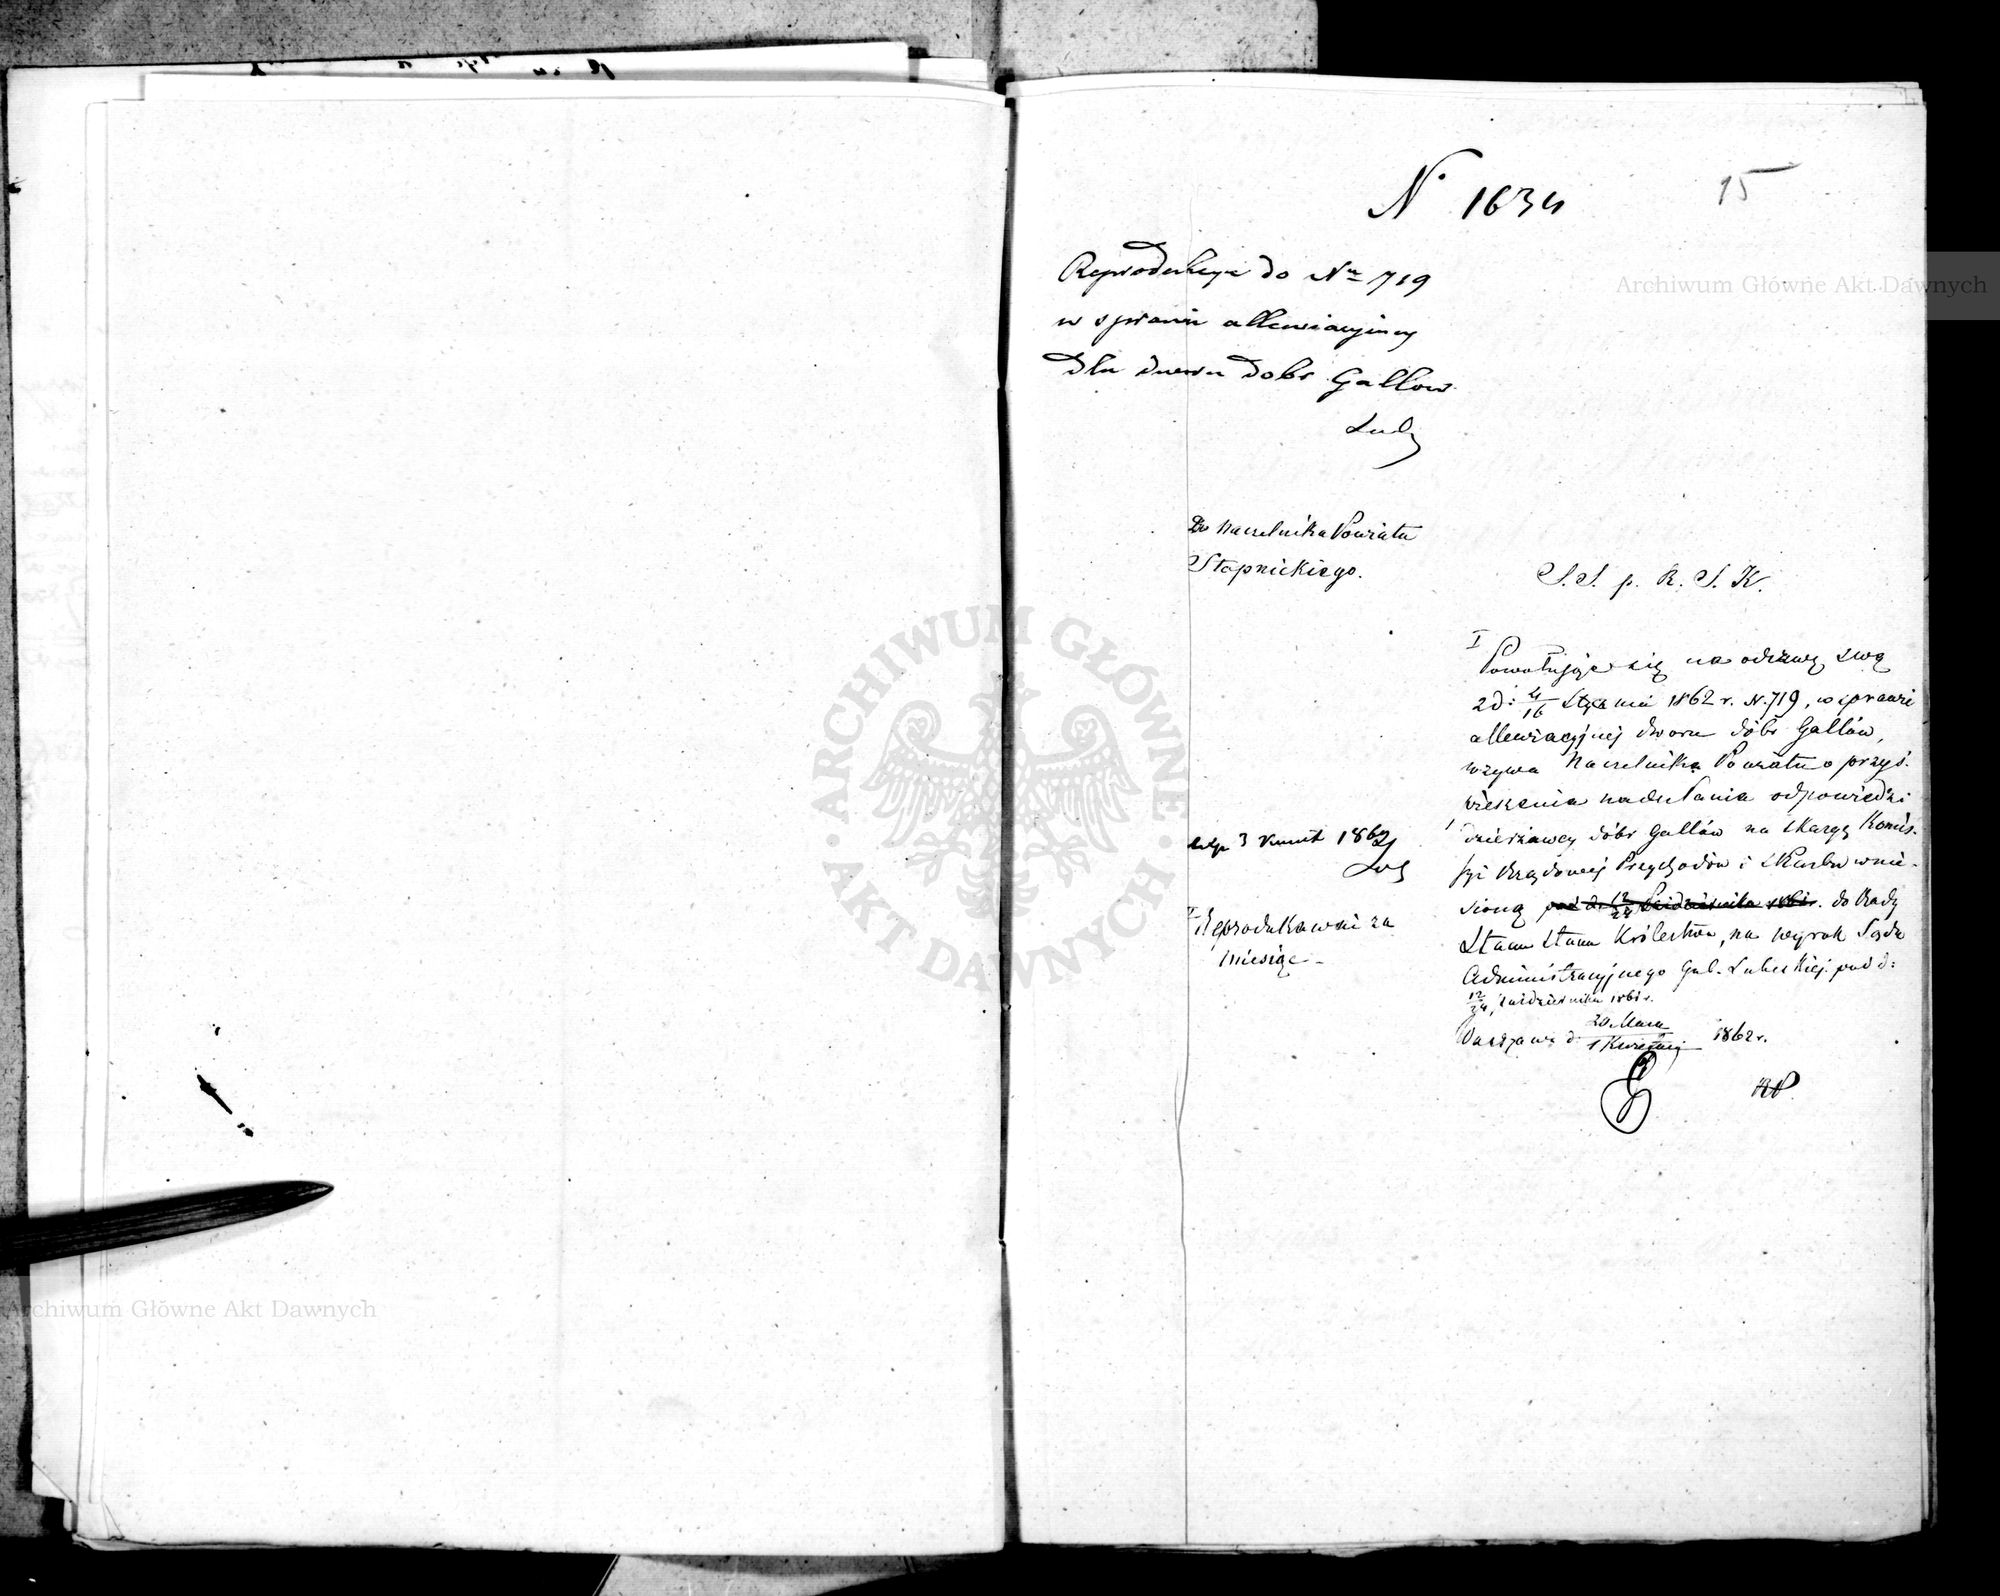 N. 1634
15
Reprodukcya do Nru 719
w sprawie allewiacyjnej
dla dworu dobr Gallow
Do Naczelnika Powiatu
Stopnickiego.
S. S. p. R. S. K.
I
Powołując się na odezwę swą
z d: 4/16 Stycznia 1862 r. N. 719, w sprawie
allewiacyjnej dworu dóbr Gallów,
wzywa Naczelnika Powiatu o przyś-
pieszenie nadesłania odpowiedzi
dzierżawcy dóbr Gallów na skargę Komis-
syi Rządowej Przychodów i Skarbu wnie-
sioną pod d. 12/24 Października 1861 r. do Rady
Stanu Stanu Królestwa, na wyrok Sądu
Administracyjnego Gub. Lubelskiej pod d:
12/24 Października 1861 r.
Warszawa d. 20 Marca / 1 Kwietnia 1862 r.
exp 3 Kwiet 1862
II Reprodukować za
miesiąc
Archiwum Główne Akt Dawnych
ARCHIWUM GŁÓWNE · AKT DAWNYCH ·
Archiwum Główne Akt Dawnych